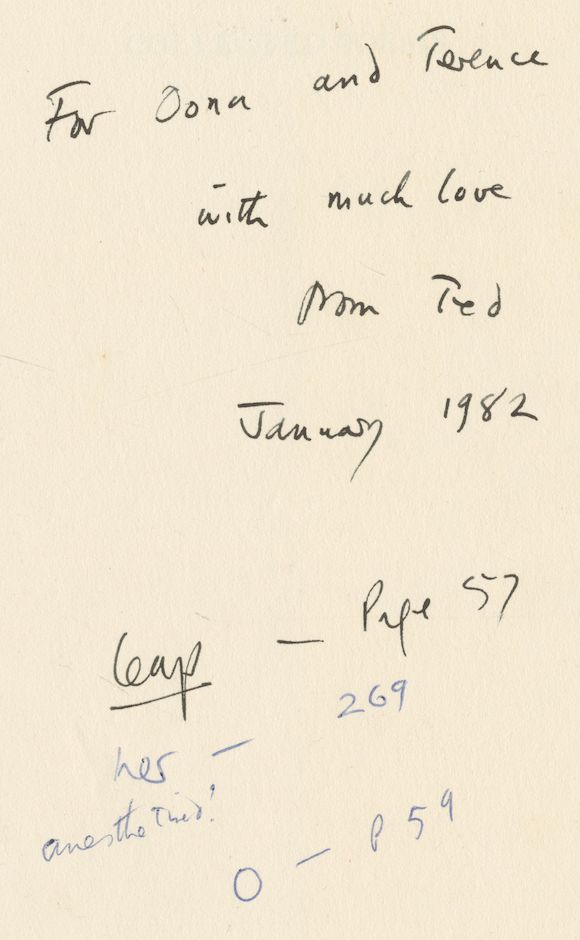 For Oona and Terence
with much love
from Ted
January 1982
leap — Page 57
269
her —
anesthetised!
O — p 59